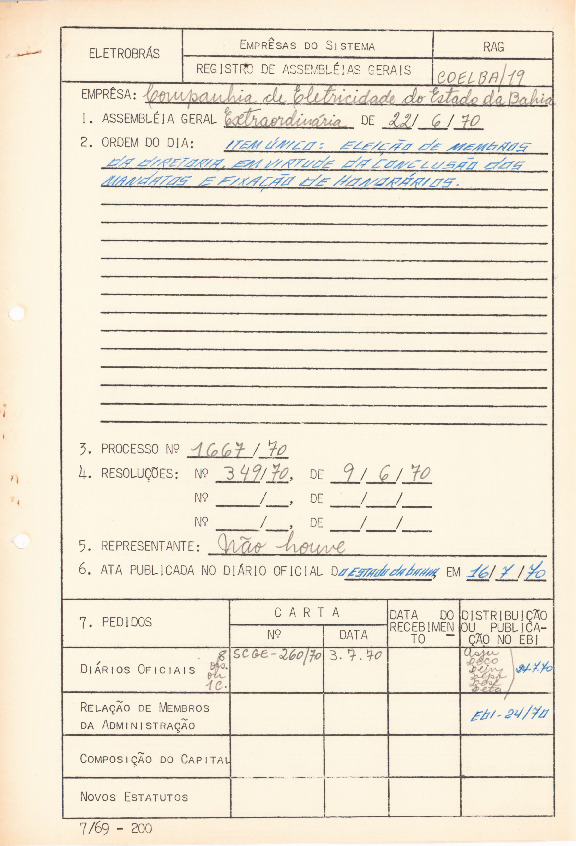 ELETROBRÁS
EMPRÊSAS DO SISTEMA
RAG
REGISTRO DE ASSEMBLÉIAS GERAIS
COELBA/19
EMPRÊSA: Companhia de Eletricidade do Estado da Bahia
1. ASSEMBLÉIA GERAL Extraordinária DE 22/ 6 / 70
2. ORDEM DO DIA: ITEM ÚNICO: ELEIÇÃO DE MEMBROS
DA DIRETORIA, EM VIRTUDE DA CONCLUSÃO DOS
MANDATOS E FIXAÇÃO DE HONORÁRIOS.
3. PROCESSO Nº 1667 / 70
4. RESOLUÇÕES: Nº 349/70, DE 9 / 6 / 70
Nº / , DE / /
Nº / , DE / /
5. REPRESENTANTE: Não houve
6. ATA PUBLICADA NO DIÁRIO OFICIAL DO ESTADO DA BAHIA, EM 16/ 7 / 70
7. PEDIDOS
CARTA
Nº
DATA
DATA DO
RECEBIMEN
TO
DISTRIBUIÇÃO
OU PUBLICA-
ÇÃO NO EBI
DIÁRIOS OFICIAIS
SCGE-260/70
3.7.70
24.7.70
RELAÇÃO DE MEMBROS
DA ADMINISTRAÇÃO
EBI-24/70
COMPOSIÇÃO DO CAPITAL
NOVOS ESTATUTOS
7/69 - 200